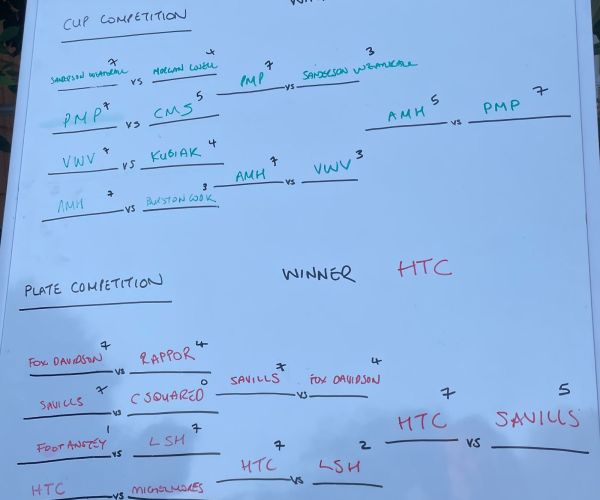 CUP COMPETITION
SANDERSON WEATHERALL 7 VS MORGAN LOVELL 4
PMP 7 VS SANDERSON WEATHERALL 3
PMP 7 VS CMS 5
AMH 5 VS PMP 7
VWV 7 VS KUBIAK 4
AMH 7 VS VWV 3
AMH 7 VS BURSTON COOK 3
WINNER HTC
PLATE COMPETITION
FOX DAVIDSON 7 VS RAPPOR 4
SAVILLS 7 VS FOX DAVIDSON 4
SAVILLS 7 VS C SQUARED 0
HTC 7 VS SAVILLS 5
FOOT ANSTEY 1 VS LSH 7
HTC 7 VS LSH 2
HTC VS MICHELMORES